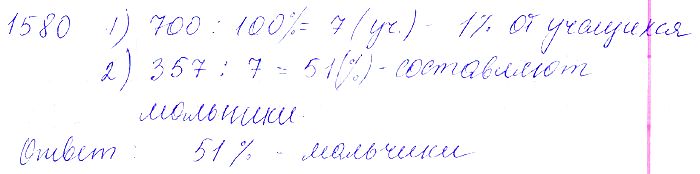 1580 1) 700 : 100% = 7 (уч.) - 1% от учащихся
2) 357 : 7 = 51(%) - составляют
мальчики
Ответ: 51% - мальчики